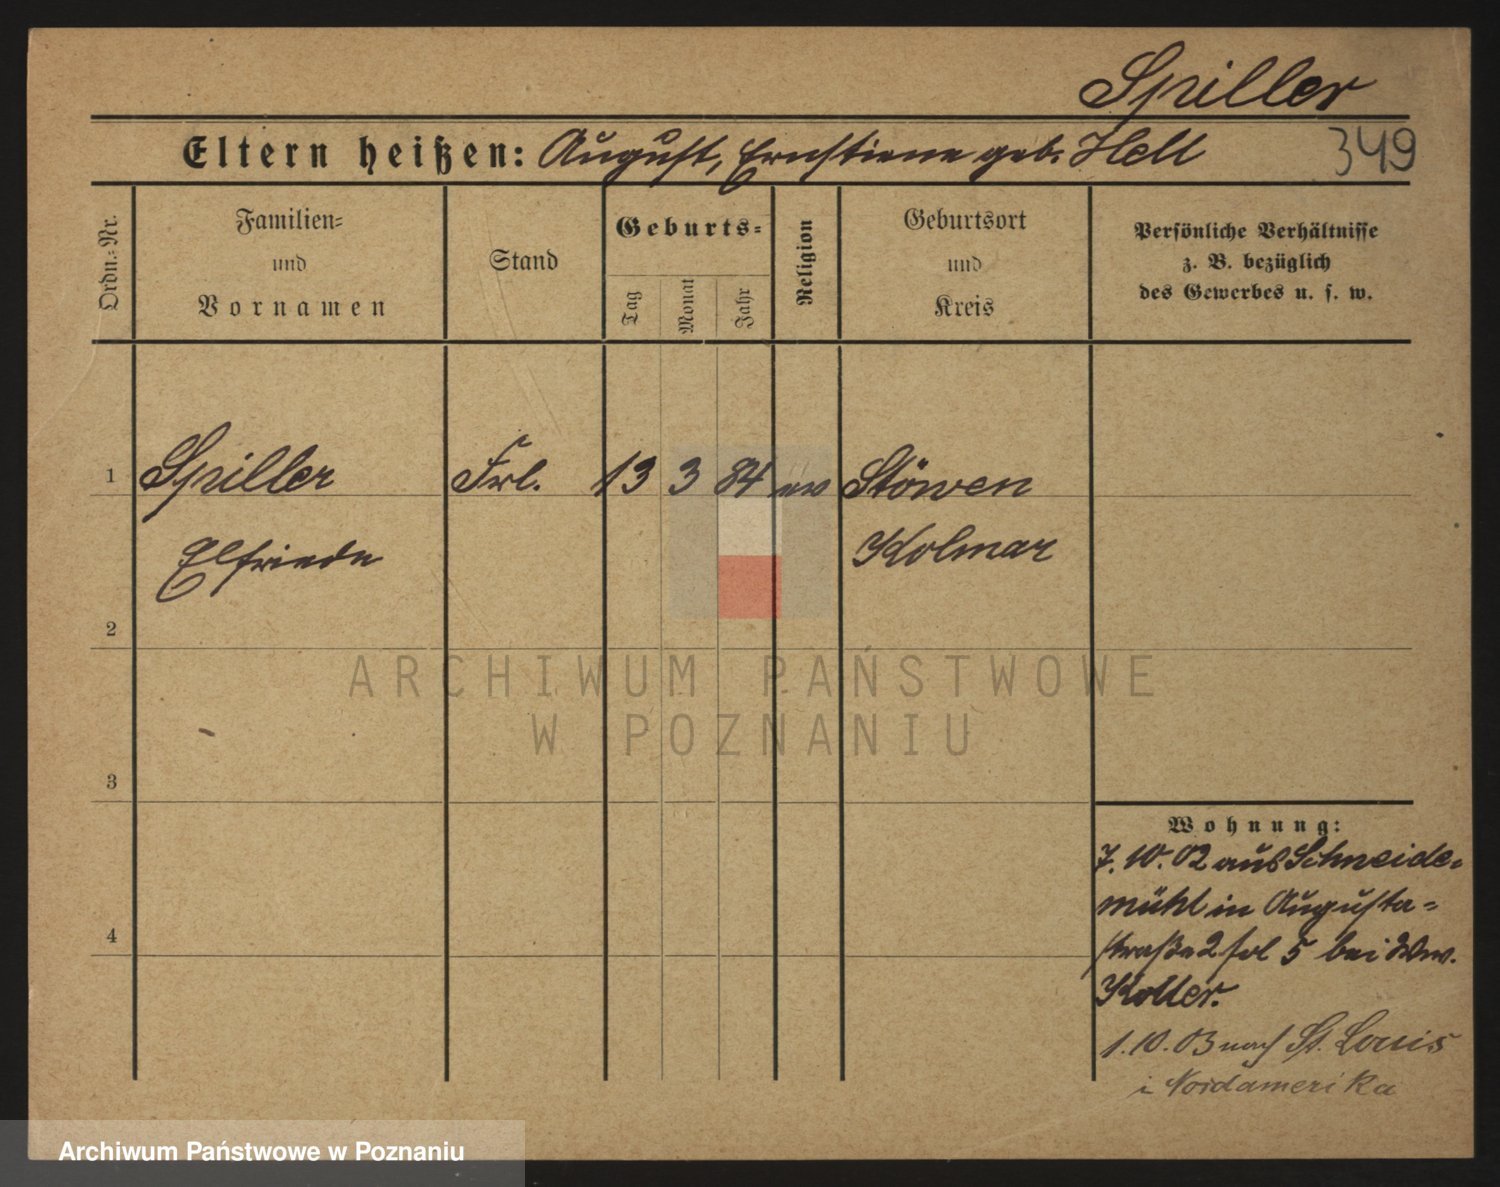 Spiller
Eltern heißen: August, Ernstiene geb. Hell
349
Ordn.-Nr.
Familien-
und
Vornamen
Stand
Geburts-
Tag
Monat
Jahr
Religion
Geburtsort
und
Kreis
Persönliche Verhältnisse
z. B. bezüglich
des Gewerbes u. s. w.
1 Spiller Frl. 13 3 84 ev Stöwen
Elfriede Kolmar
2
ARCHIWUM PAŃSTWOWE
W POZNANIU
3
Wohnung:
7.10.02 aus Schneide-
mühl in Augusta-
straße 2 fol 5 bei Ww.
Koller.
4
1.10.03 nach St. Louis
i Nordamerika
Archiwum Państwowe w Poznaniu